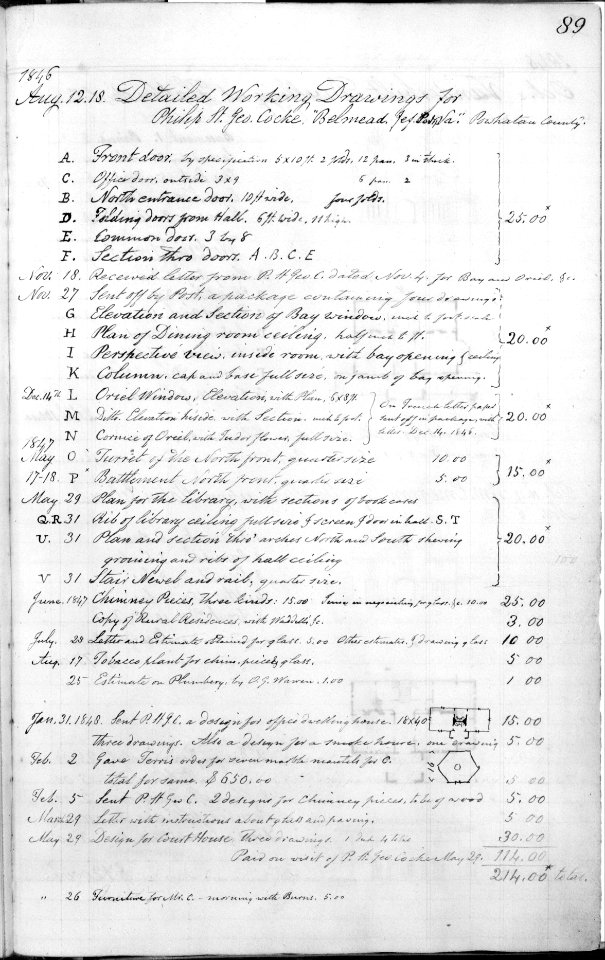 89
1846
Aug. 12.18. Detailed Working Drawings for
Philip St. Geo. Cocke, "Belmead, Va." Powhatan County.
A. Front door. by specification 5 x 10 ft. 2 folds, 12 pan. 3 in thick.
C. Office door, outside 3 x 9 6 pan. 2
B. North entrance door. 10 ft wide, four folds.
D. Folding doors from Hall. 6 ft. wide, 11 high. 25.00 x
E. Common door. 3 by 8
F. Section thro doors. A. B. C. E
Nov. 18. Received letter from P. St Geo C. dated Nov 4. for Bay and Oriel, &c.
Nov. 27 Sent off by Post, a package containing four drawings:
G Elevation and Section of Bay window, inch to foot scale
H Plan of Dining room ceiling. half inch to ft. 20.00 x
I Perspective view, inside room, with bay opening & ceiling
K Column, cap and base full size, on jamb of bay opening.
Dec. 14th L Oriel Window, Elevations, with Plan, On French letter paper
M Ditto Elevation inside, with Section. inch to foot. sent off in package, with 20.00 x
N Cornice of Oriel, with Tudor flower, full size. letter Dec. 14. 1846.
1847
May O Turret of the North front, quarter size 10.00
17-18. P x Battlement North front, quarter size 5.00 15.00 x
May 29 Plan for the library, with sections of book cases
Q.R. 31 Rib of library ceiling full size & screen & door in hall. S. T
U. 31 Plan and section thro' arches North and South shewing 20.00 x
groining and ribs of hall ceiling
V 31 Stair Newel and rail, quarter size.
June. 1847 Chimney Pieces, three kinds: 15.00 for glass. &c. 10.00 25.00
Copy of Rural Residences, with Waddell &c. 3.00
July. 28 Letter and Estimate obtained for glass. 5.00 Other estimates, & drawing glass 10 00
Aug. 17 Tobacco plant for chim. pieces, glass. 5 00
25 Estimate on Plumbery, by O. G. Warren. 1.00 1 00
Jan. 31. 1848. Sent P. St G C. a design for office dwelling house. 18 x 40 15.00
three drawings. Also a design for a smoke house, one drawing 5.00
Feb. 2 Gave Ferris order for seven marble mantels for C. 16
total for same, $650.00 5 00
Feb. 5 Sent P. St Geo C. 2 designs for Chimney pieces, to be of wood 5.00
March 29 Letter with instructions about and paving. 5 00
May 29 Design for Court House three drawings. 30.00
Paid on visit of P. St. Geo Cocke May 29. 114.00
214.00 x total.
" 26 Furniture for Mr. C. - morning with Burns. 5.00